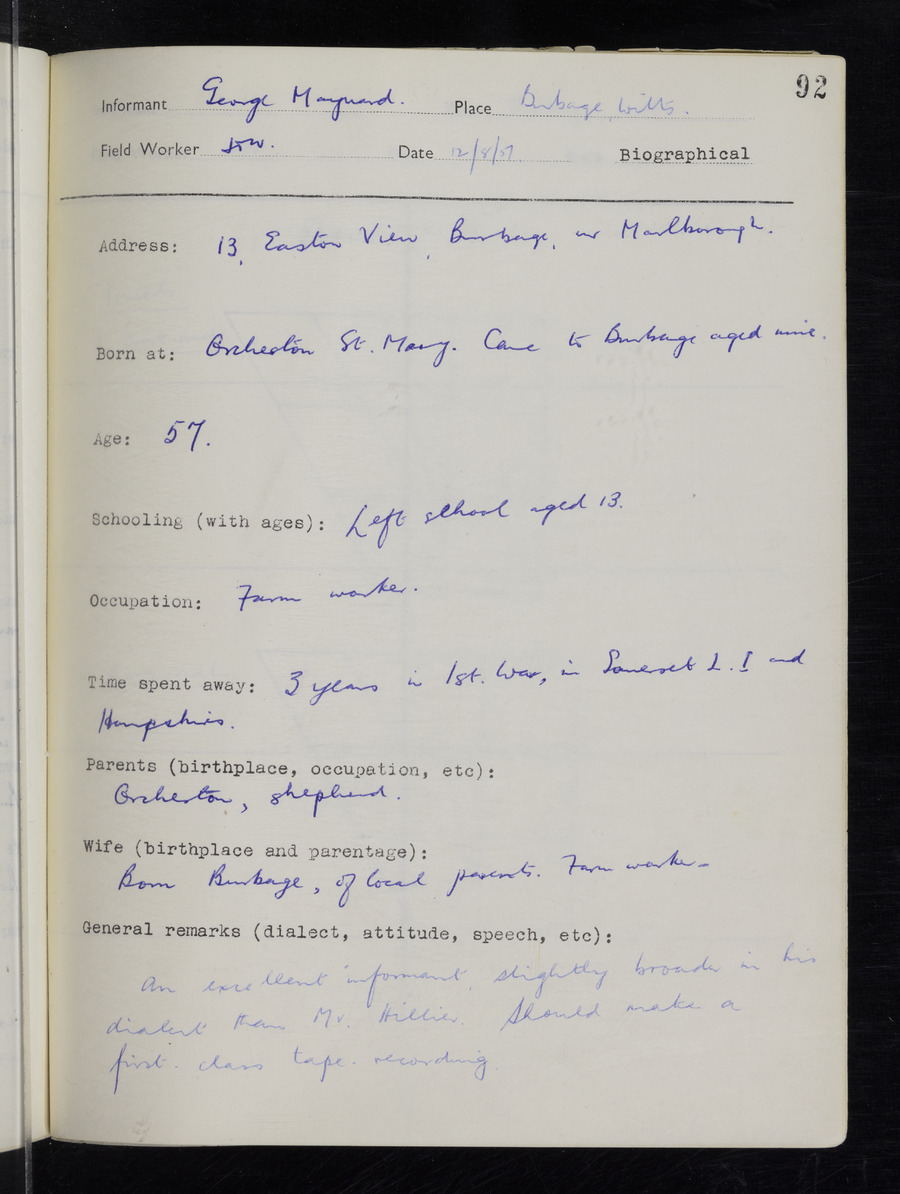 92
Informant George Maynard. Place Burbage, Wilts.
Field Worker Date 12/8/57. Biographical
Address: 13, Easton View, Burbage, nr Marlborough.
Born at: Orcheston St. Mary. Came to Burbage aged nine.
Age: 57.
Schooling (with ages): Left school aged 13.
Occupation: Farm worker.
Time spent away: 3 years in 1st. War, in Somerset L. I and
Hampshires.
Parents (birthplace, occupation, etc):
Orcheston, shepherd.
Wife (birthplace and parentage):
Born Burbage, of local parents. Farm worker
General remarks (dialect, attitude, speech, etc):
An excellent informant, slightly broader in his
dialect than Mr. Hillier. Should make a
first-class tape-recording.